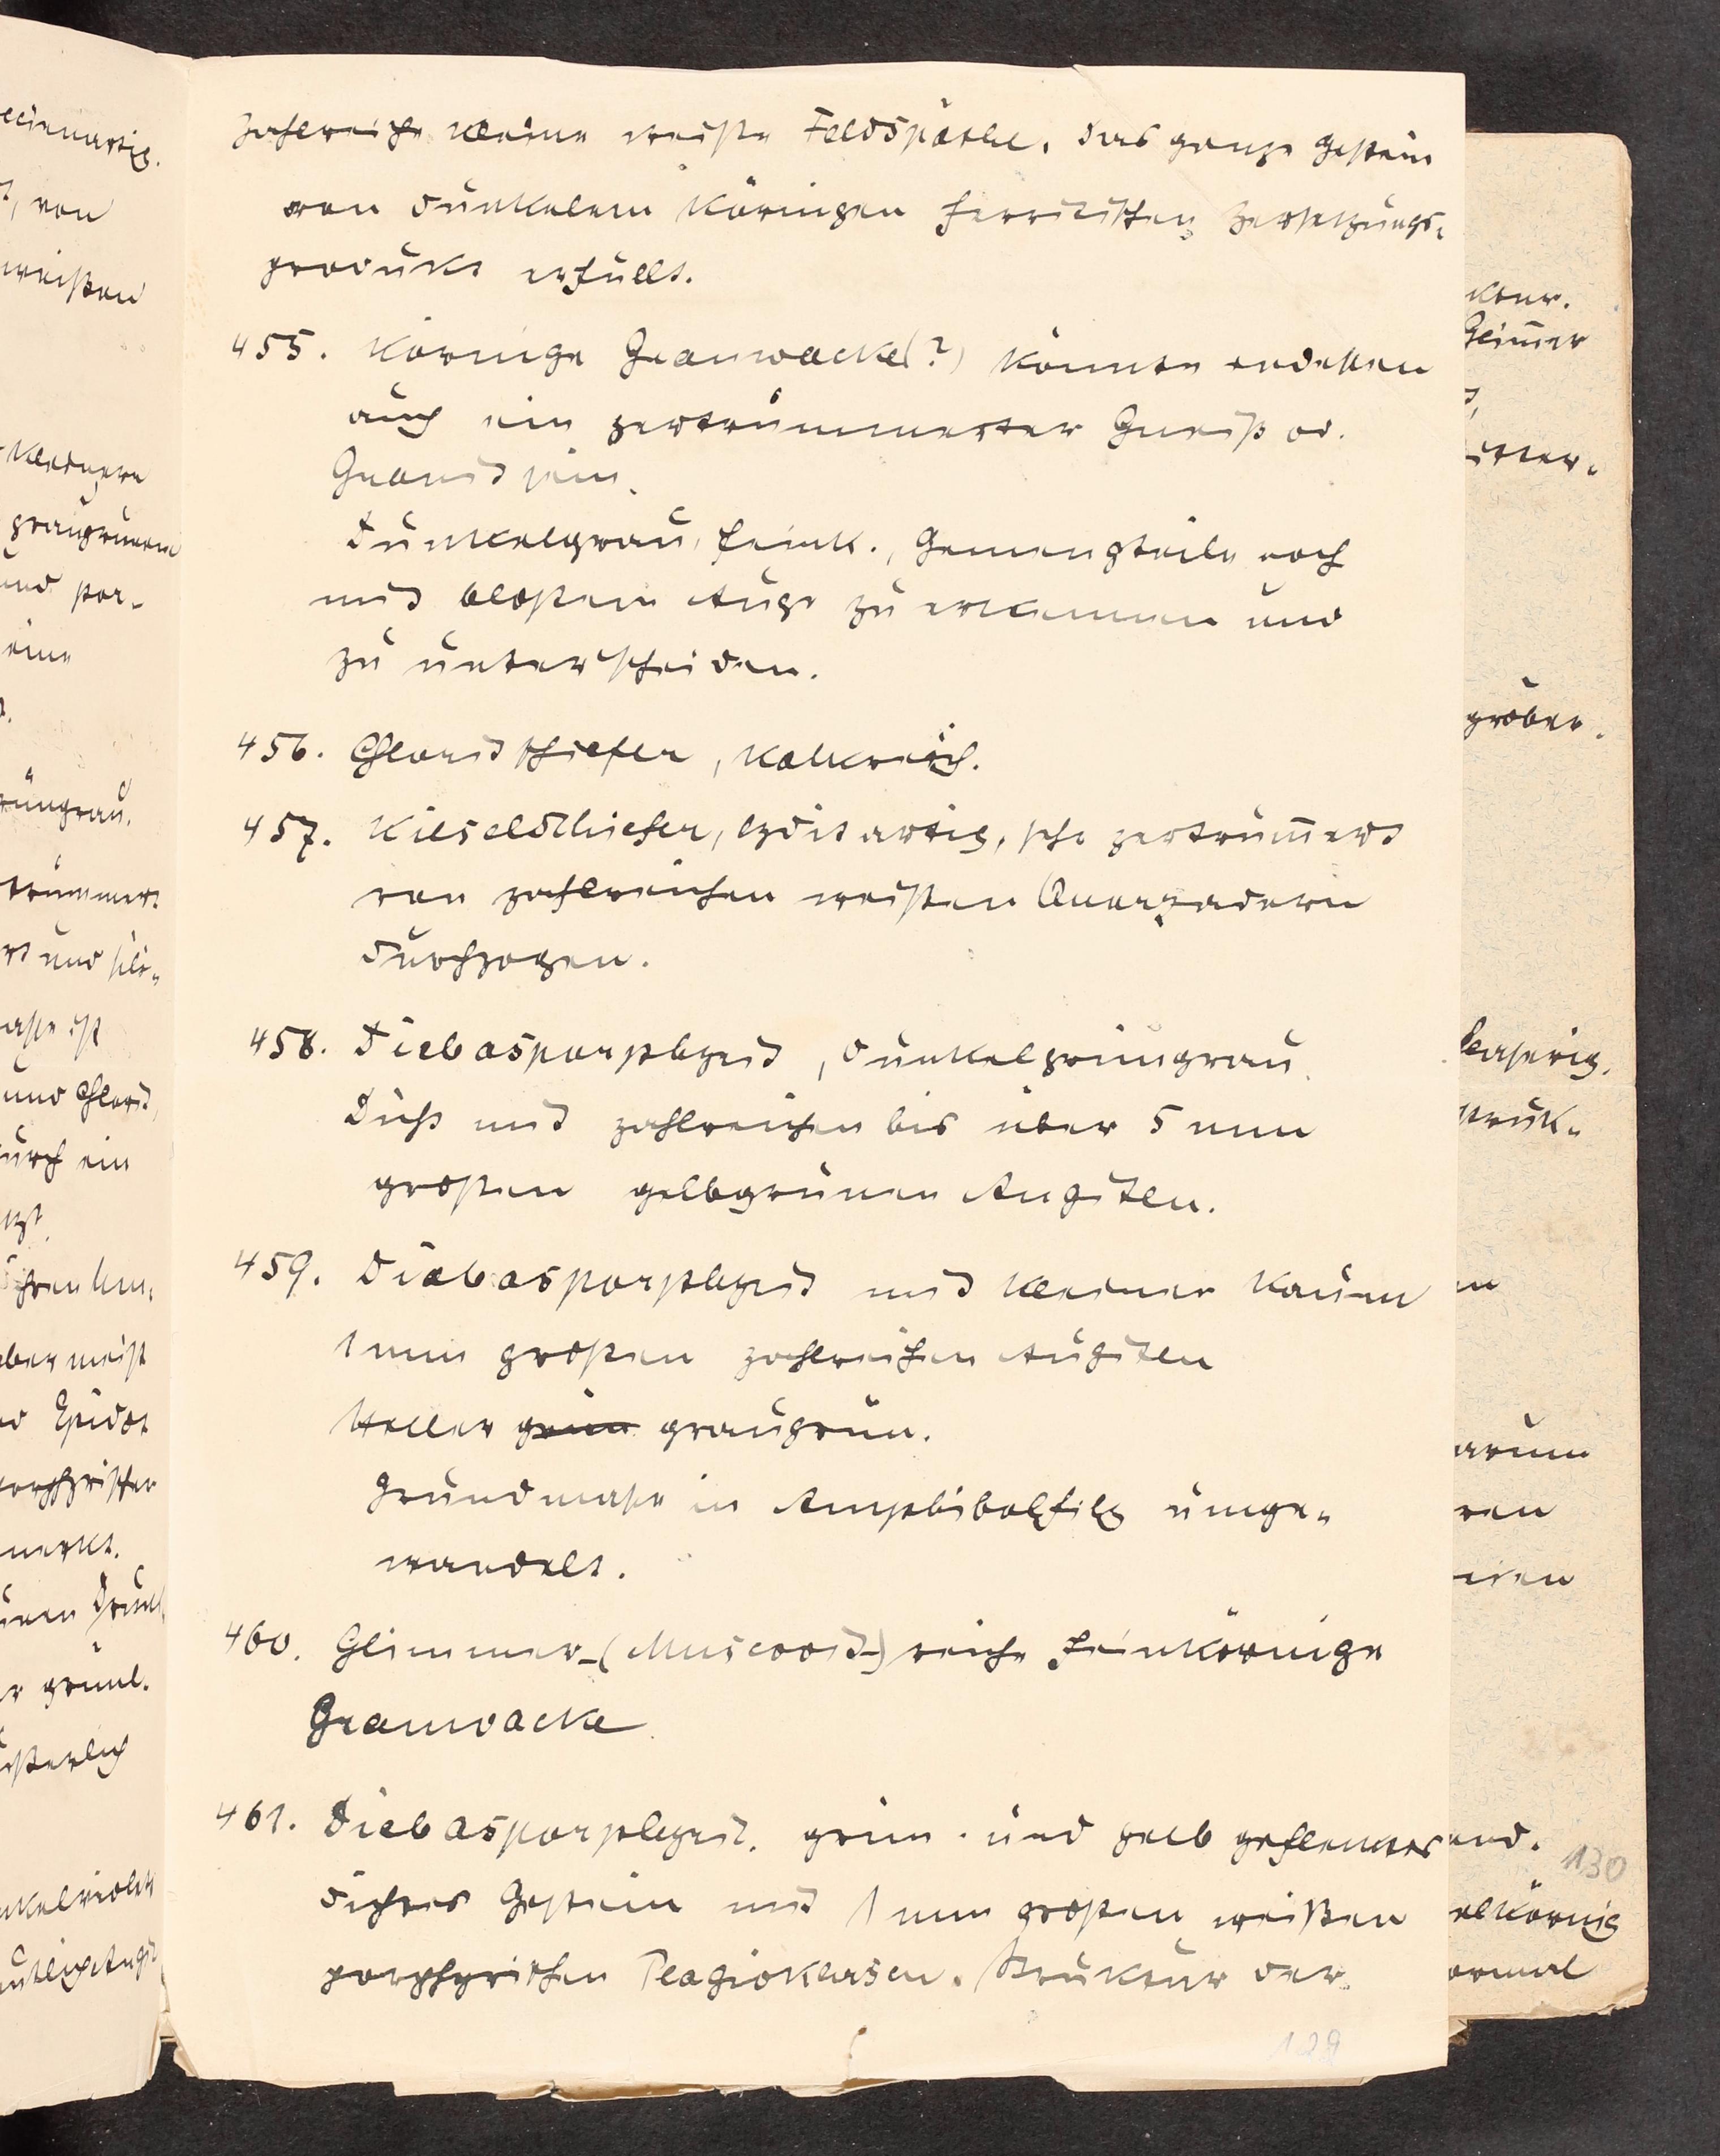 zahlreiche kleine weiße Feldspäthe. Das ganze Gestein
von dunkelem körnigen ferritischen Zersetzungs-
produkt erfüllt.
455. Körnige Grauwacke(?) könnte indessen
auch ein zertrümmerter Gneiß od.
Granit sein.
Dunkelgrau, feink., Gemengteile noch
mit bloßem Auge zu erkennen und
zu unterscheiden.
456. Chloritschiefer, kalkreich.
457. Kieselschiefer, lyditartig, sehr zertrüm̅ert
von zahlreichen weißen Quarzadern
durchzogen.
458. Diabasporphyrit, dunkelgrüngrau.
Dicht mit zahlreichen bis über 5 mm
großen gelbgrünen Augiten.
459. Diabasporphyrit mit kleinen kaum
1 mm großen zahlreichen Augiten
Heller grün graugrün.
Grundmasse in Amphibolfilz umge-
wandelt.
460. Glimmer-(Muscovit-)reiche feinkörnige
Grauwacke
461. Diabasporphyrit. grün- und gelb geflecktes
dichtes Gestein mit 1 mm großen weißen
porphyrischen Plagioklasen. Struktur der
129
130